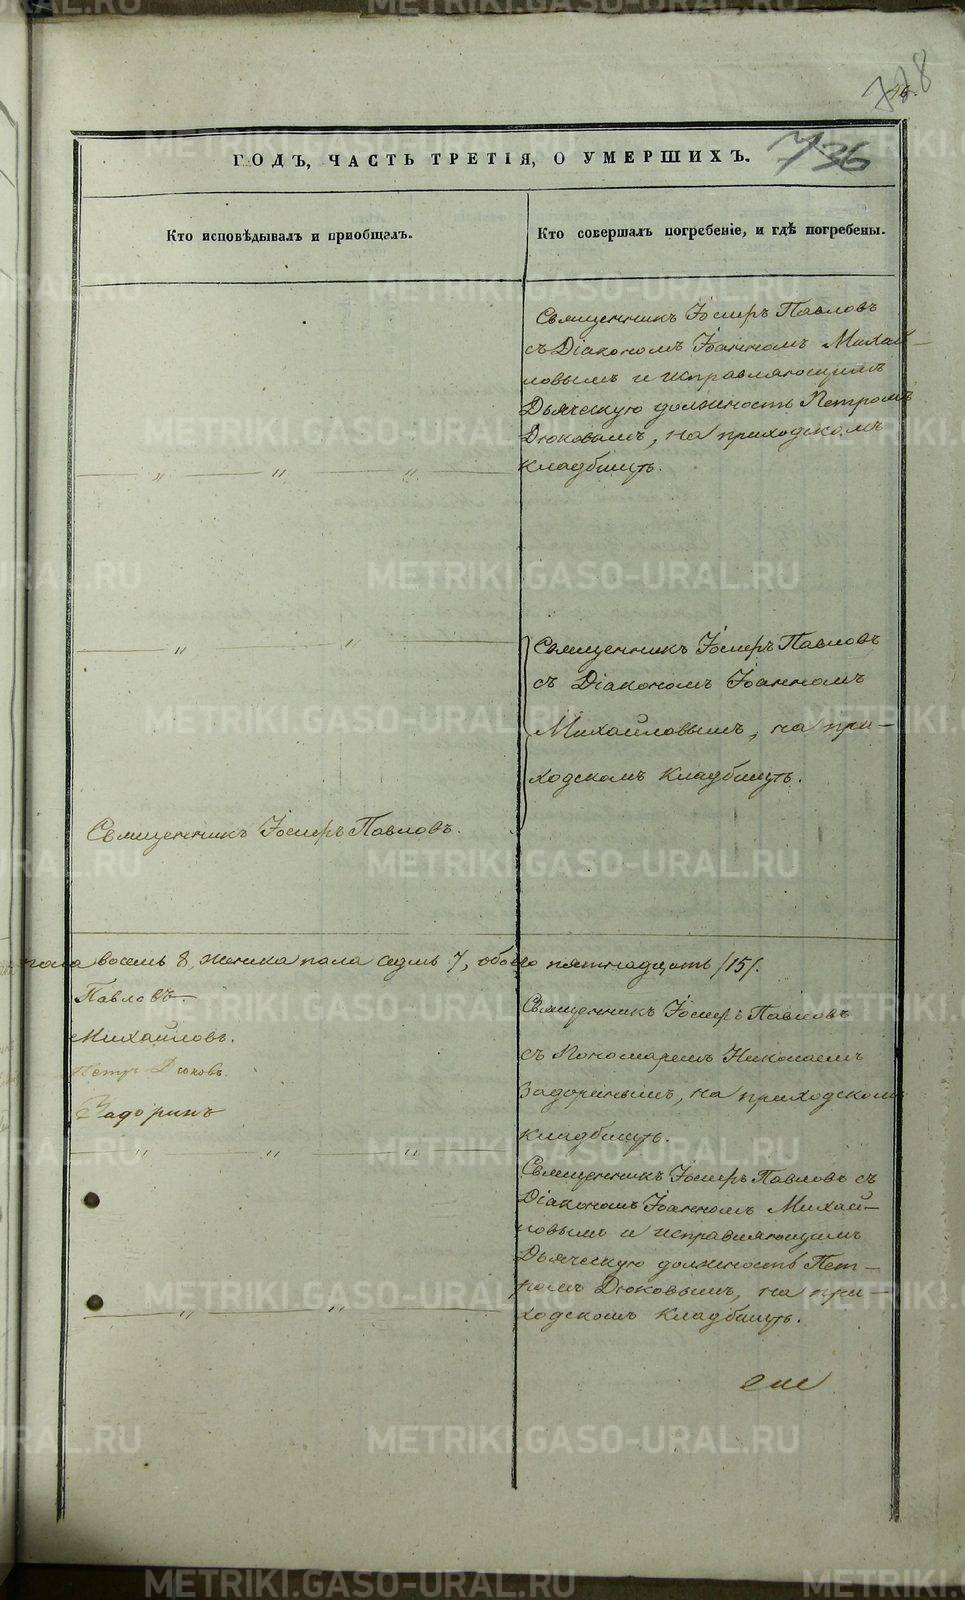 778
736
ГОДЪ, ЧАСТЬ ТРЕТІЯ, О УМЕРШИХЪ.
Кто исповѣдывалъ и пріобщалъ.
Кто совершалъ погребеніе, и гдѣ погребены.
Священникъ Іосифъ Павловъ
съ Діакономъ Іоанномъ Михай-
ловымъ и исправляющимъ
Дьяческую должность Петромъ
Дюковымъ, на приходскомъ
кладбищѣ.
Священникъ Іосифъ Павловъ
съ Діакономъ Іоанномъ
Михайловымъ, на при-
ходскомъ кладбищѣ.
Священникъ Іосифъ Павловъ.
пола восемь 8, женска пола седмь 7, обоего пятнадцать /15/.
Павловъ
Михайловъ.
Петръ Дюковъ.
Задоринъ
Священникъ Іосифъ Павловъ
съ Пономаремъ Николаемъ
Задоринымъ, на приходскомъ
кладбищѣ.
Священникъ Іосифъ Павловъ съ
Діакономъ Іоанномъ Михай-
ловымъ и исправляющимъ
Дьяческую должность Пет-
ромъ Дюковымъ, на при-
ходскомъ кладбищѣ.
METRIKI.GASO-URAL.RU